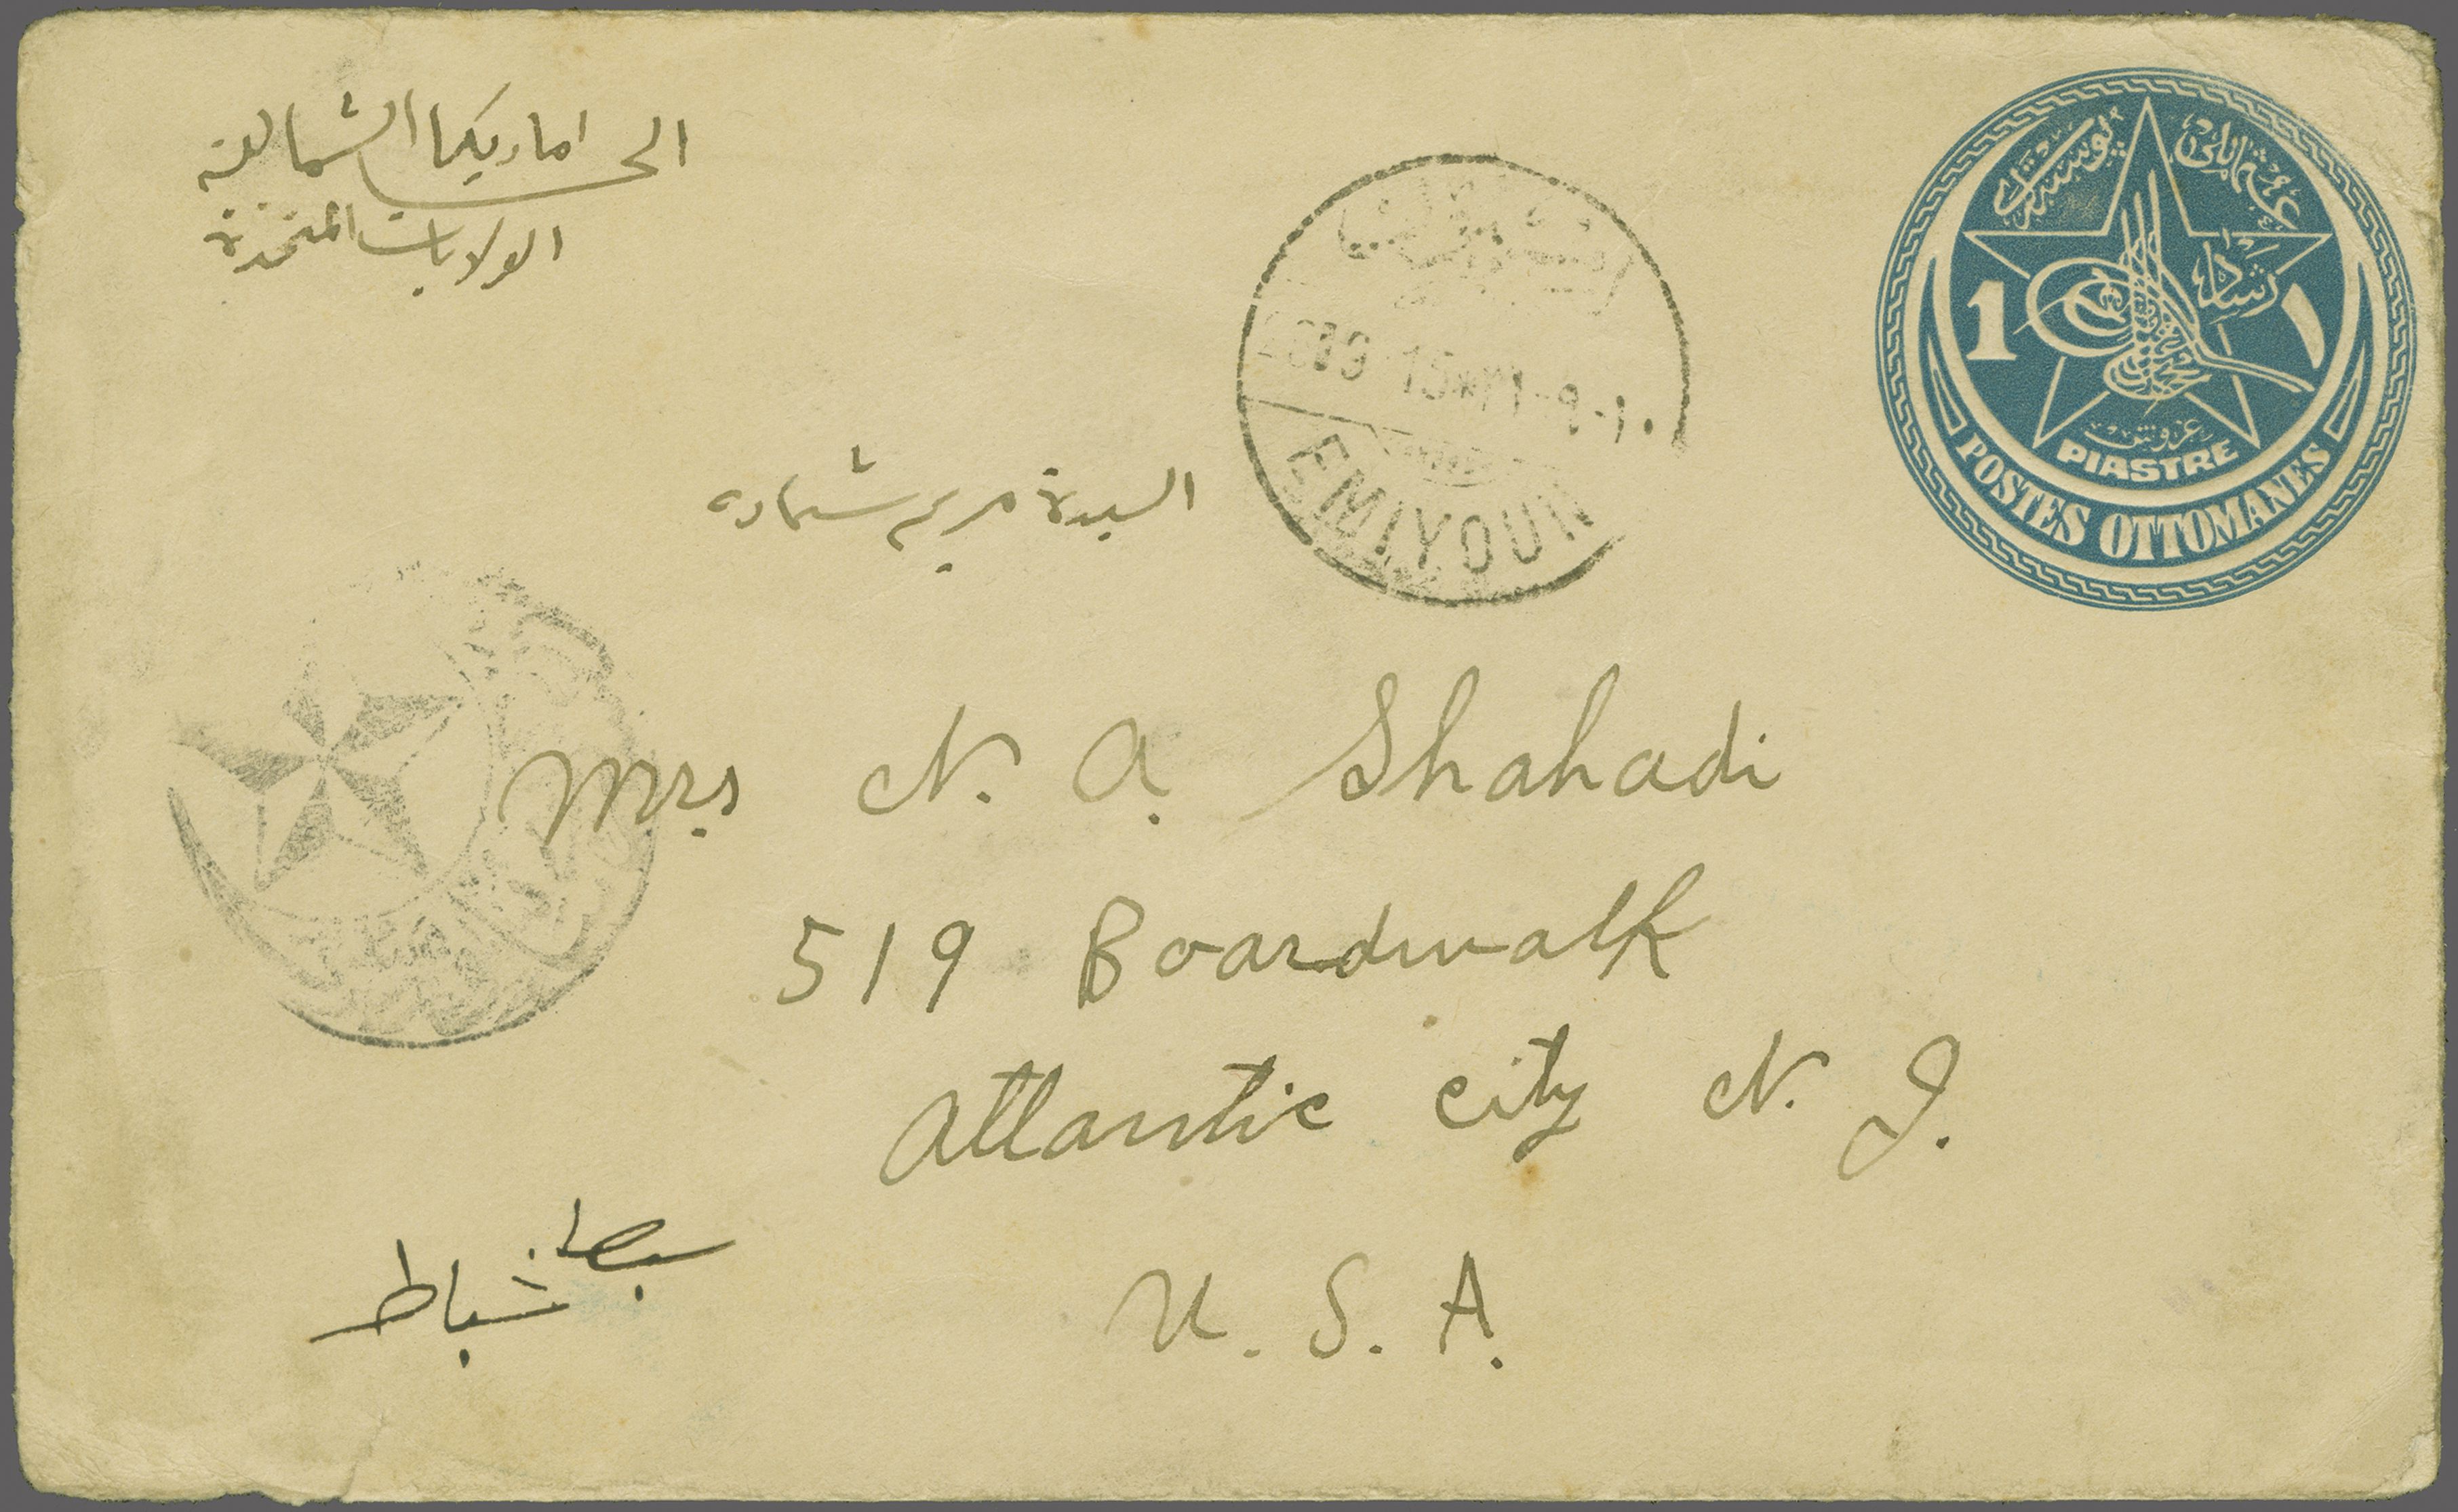 الى اماريكا الشمالية
الولايات المتحدة
عثمانلى پوستەلرى
رشاد
1 ١
غروش
PIASTRE
POSTES OTTOMANES
15 * 11-9-10
EMIYOUN
السيدة مريم شحاده
Mrs N. A. Shahadi
519 Boardwalk
Atlantic City N. J.
U. S. A.
شباط